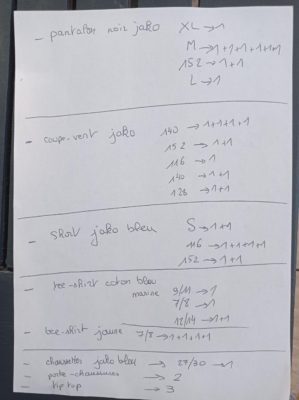 - pantalon noir jako XL → 1
M → 1+1+1+1+1
152 → 1+1
L → 1
- coupe-vent jako 140 → 1+1+1+1
152 → 1+1
116 → 1
140 → 1+1
128 → 1+1
- short jako bleu S → 1+1
116 → 1+1+1+1
152 → 1+1
- tee-shirt coton bleu
marine 9/11 → 1
7/8 → 1
12/14 → 1+1
- tee-shirt jaune 7/8 → 1+1+1+1
- chaussettes jako bleu → 27/30 → 1
- porte-chaussures → 2
- tip top → 3